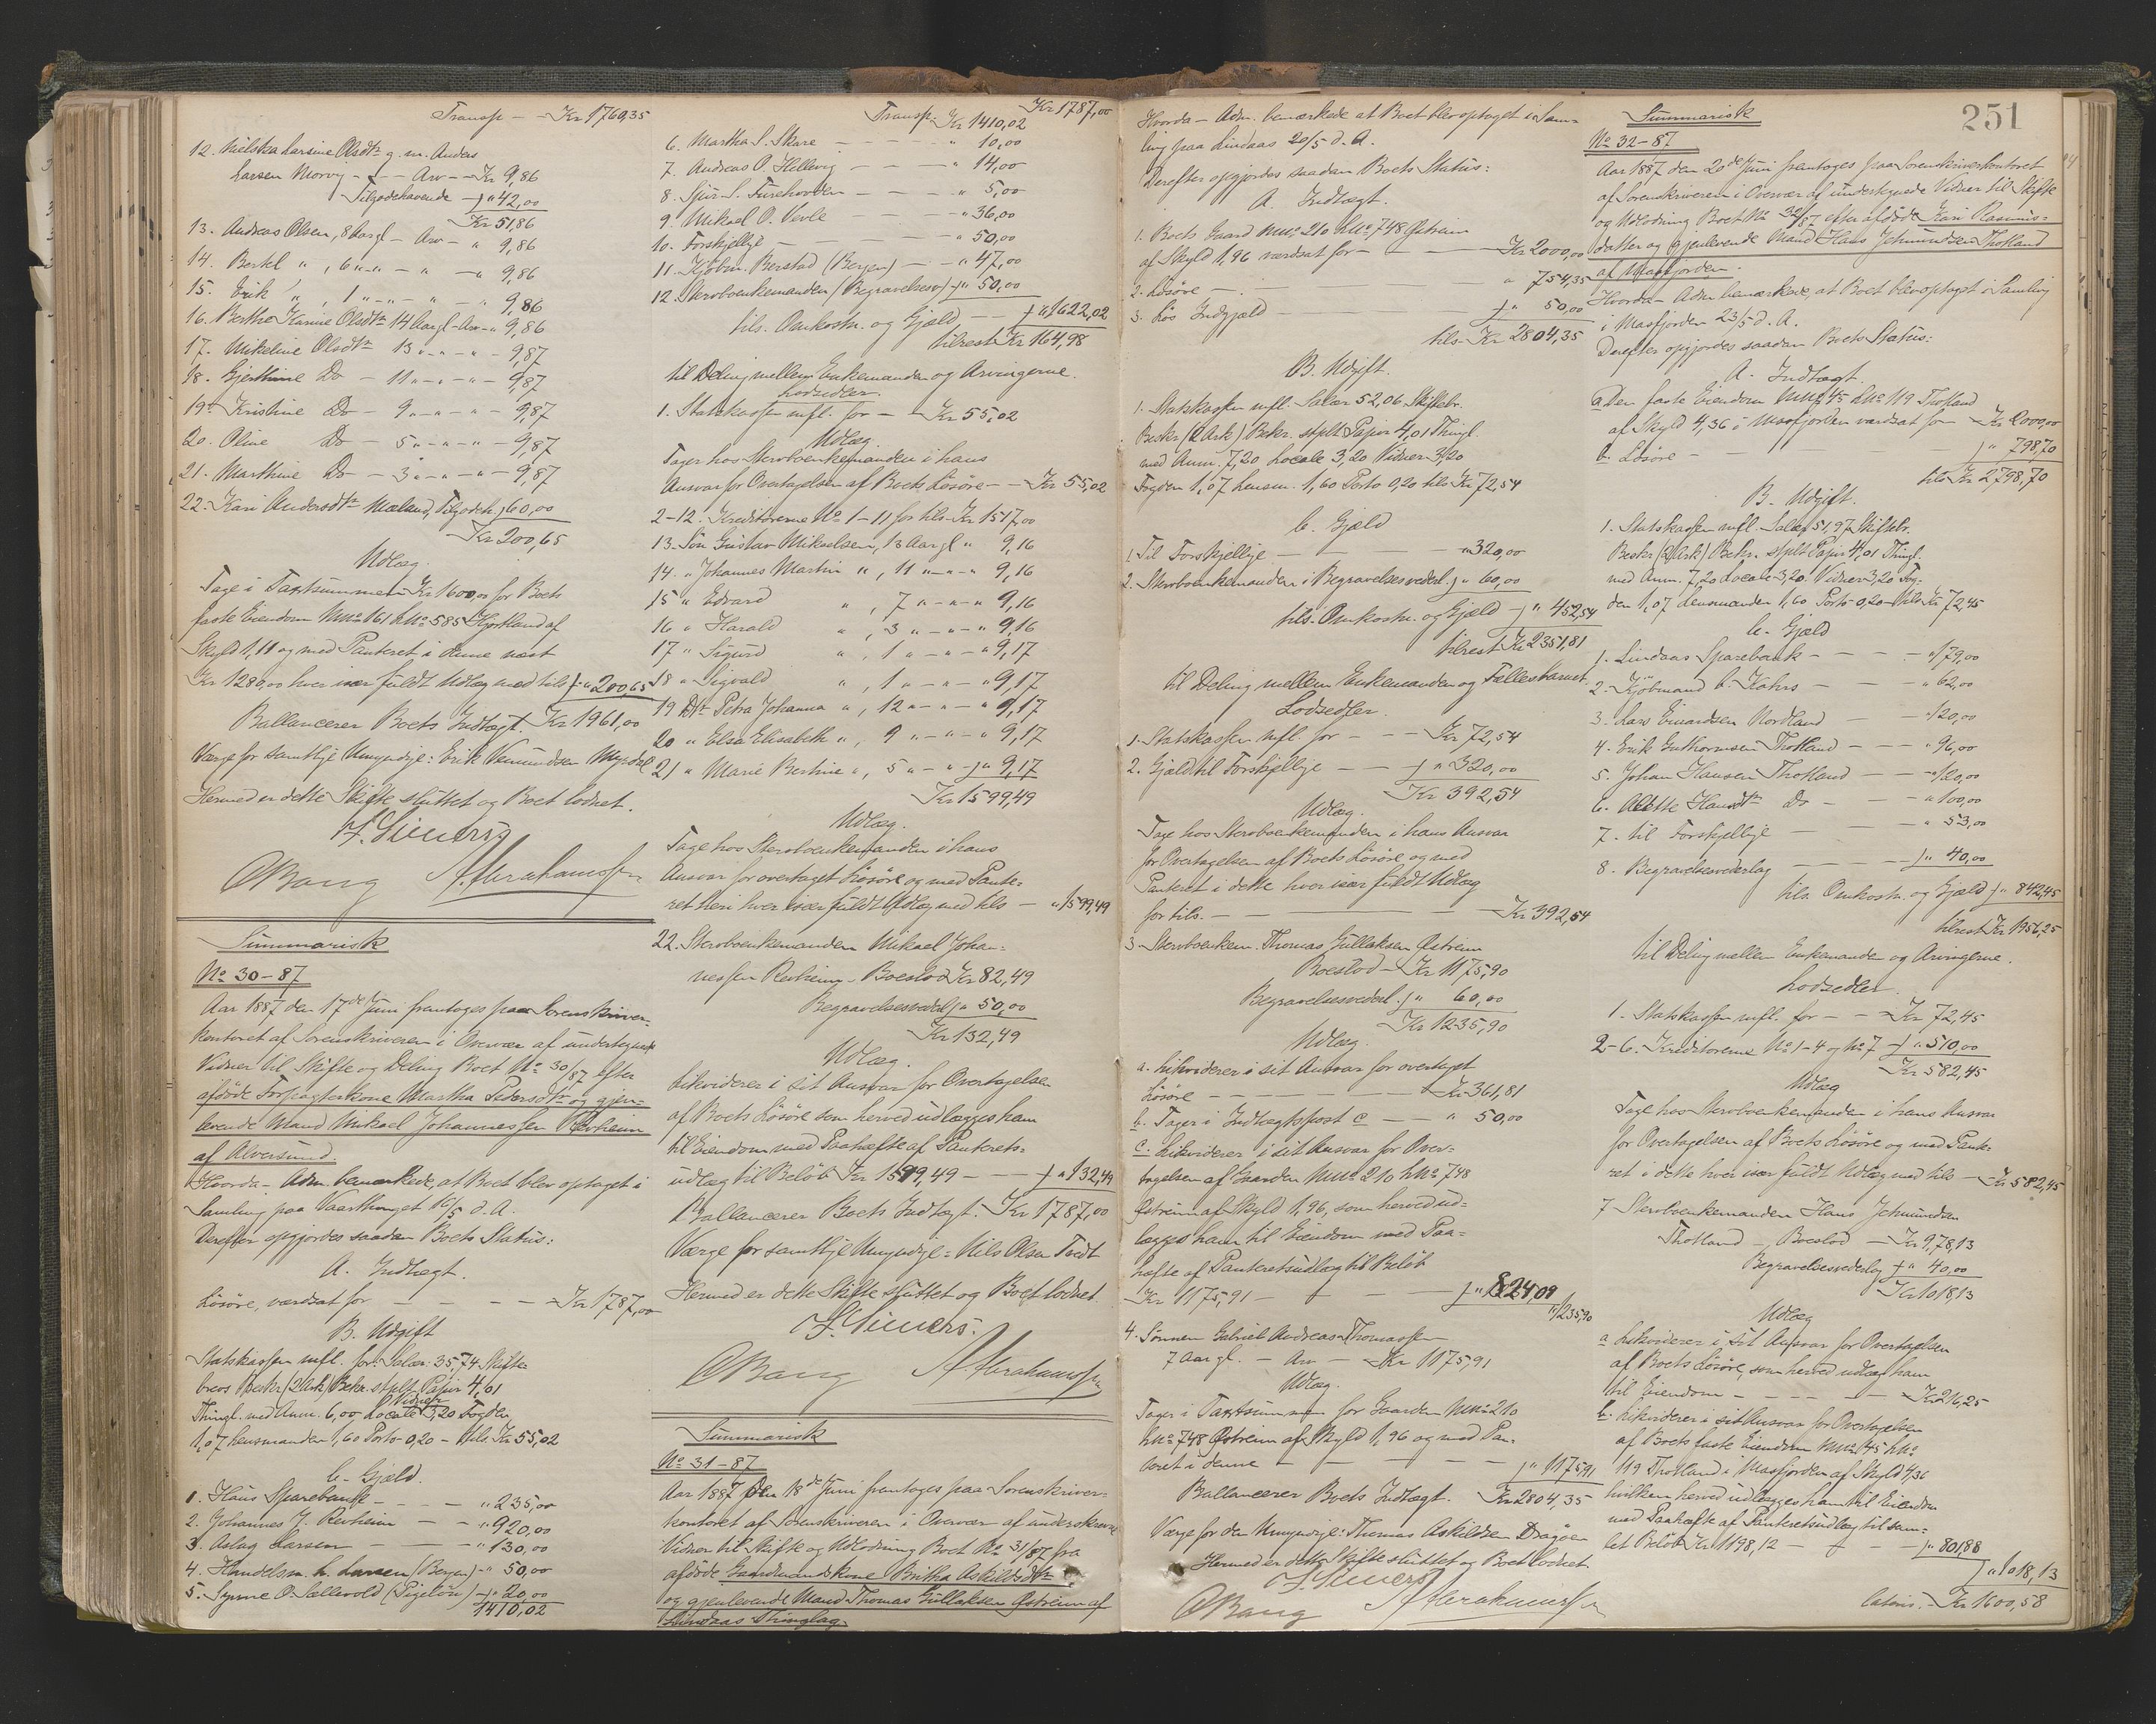 Transp — Kr 1760,35
12. Nielska Larsine Olsdtr g. m. Anders
Larsen Morvig — Arv — Kr 9,86
Tilgodehavende — " 42,00
Kr 51,86
13. Andreas Olsen, 8 Aar gl — Arv — " 9,86
14. Bertel " , 6 " — " — " 9,86
15. Erik " , 1 " — " — " 9,86
16. Berthe Karine Olsdtr 14 Aar gl — Arv — " 9,86
17. Mikeline Olsdtr 13 " — " — 9,87
18. Gjerthine Do — 11 " — " — 9,87
19. Kristine Do — 9 " — " — 9,87
20. Oline Do — 5 " — " — 9,87
21. Marthine Do — 3 " — " — 9,87
22. Kari Andersdtr Mæland, Tilgodeh. 60,00
Kr 200,65
Udlæg.
Tage i Taxtsummen Kr 1600,00 for Boets
faste Eiendom MNo 161 LNo 585 Hjortland af
Skyld 1,11 og med Panteret i denne næst
Kr 1280,00 hver især fuldt Udlæg med tils " 200,65
Ballancerer Boets Indtægt. Kr 1961,00
Værge for samtlige Umyndige: Erik Vemundsen Myrdal
Hermed er dette Skifte sluttet og Boet lodnet.
F. Sievers
O Bang A. Abrahamssen
Summarisk
No 30-87
Aar 1887 den 17de Juni foretoges paa Sorenskriver-
kontoret af Sorenskriveren i Overvær af undertegnede
Vidner til Skifte og Deling Boet No 30/87 efter
afdöde Forpagterkone Martha Pedersdtr og gjen-
levende Mand Mikael Johannessen Revheim
af Alversund.
Hvorda — Adm. bemærkede, at Boet blev optaget i
Samling paa Vaarthinget 16/5 d. A.
Derefter opgjordes saadan Boets Status:
A. Indtægt.
Lösöre, værdsat for — — — Kr 1787,00
B. Udgift
Statskassen mfl. for: Salær 35,74 Skifte-
brevs Beskr. (2 Ark) Bekr. stplt Papir 4,01
Thingl. med Anm. 6,00 Locale Vidner 3,20 Fogden
1,07 Lensmanden 1,60 Porto 0,20 — tils. Kr 55,02
C. Gjæld.
1. Haus Sparebank — — — " 235,00
2. Johannes J. Revheim — — " 920,00
3. Aslag Larsen — — " 130,00
4. Handelsm. H. Larsen (Bergen) — " 50,00
5. Synne O. Sællevold (Pigelön) — " 20,00
1410,02
Transp. Kr 1410,02 Kr 1787,00
6. Martha S. Skare — — — " 10,00
7. Andreas O. Hellevig — " 14,00
8. Sjur S. Furehovden — — — " 5,00
9. Mikael O. Vevle — — — " 36,00
10. Forskjellige — — — " 50,00
11. Kjöbm. Berstad (Bergen) — — " 47,00
12. Stervboenkemanden (Begravelsesv) " 50,00
tils. Omkostn. og Gjæld — — " 1622,02
tilrest Kr 164,98
til Deling mellem Enkemanden og Arvingerne.
Lodsedler.
1. Statskassen mfl. for — Kr 55,02
Udlæg.
Tager hos Stervboenkemanden i hans
Ansvar for Overtagelsen af Boets Lösöre — — Kr 55,02
2-12. Kreditorerne No 1-11 for tils. Kr 1517,00
13. Sön Gustav Mikaelsen, 13 Aar gl " 9,16
14. " Johannes Martin " , 11 " — " 9,16
15 " Edvard " , 7 " — " 9,16
16 " Harald " , 3 " — " 9,16
17 " Sigurd " , 1 " — " 9,17
18 " Sigvald " , 1 " — " 9,17
19 Dtr Petra Johanna " , 12 " — " 9,17
20 " Elsa Elisabeth " , 9 " — " 9,17
21 " Marie Bertine " , 5 " — " 9,17
Kr 1599,49
Udlæg.
Tage hos Stervboenkemanden i hans
Ansvar for overtaget Lösöre og med Pante-
ret heri hver især fuldt Udlæg med tils — " 1599,49
22. Stervboenkemanden Mikael Johan-
nessen Revheim — Boeslod Kr 82,49
Begravelsesvederl " 50,00
Kr 132,49
Udlæg.
Likviderer i sit Ansvar for Overtagelsen
af Boets Lösöre som herved udlægges ham
til Eiendom med Paahæfte af Panterets-
udlæg til Belöb Kr 1599,49 — — " 132,49
Ballancerer Boets Indtægt. Kr 1787,00
Værge for samtlige Umyndige: Nils Olsen Tvedt
Hermed er dette Skifte sluttet og Boet lodnet.
F. Sievers.
O Bang A. Abrahamssen
Summarisk
No 31-87
Aar 1887 den 18de Juni foretoges paa Sorenskriver-
kontoret af Sorenskriveren i Overvær af underskrevne
Vidner til Skifte og Udlodning Boet No 31/87 fra
afdöde Gaardmandskone Britha Askildsdtr
og gjenlevende Mand Thomas Gullaksen Östreim af
Lindaas Thinglag.
Hvorda — Adm. bemærkede at Boet blev optaget i Sam-
ling paa Lindaas 20/5 d. A.
Derefter opgjordes saadan Boets Status:
A. Indtægt.
1. Boets Gaard MNo 210 LNo 748 Östreim
af Skyld 1,96 værdsat for — — Kr 2000,00
2. Lösöre — — — " 754,35
3. Lös Indgjæld — — — " 50,00
tils. Kr 2804,35
B. Udgift.
1. Statskassen mfl. Salær 52,06 Skiftebr.
Beskr. (2 Ark) Bekr. stplt Papir 4,01 Thingl.
med Anm. 7,20 Locale 3,20 Vidner 3,20
Fogden 1,07 Lensm. 1,60 Porto 0,20 tils Kr 72,54
C. Gjæld
1. Til Forskjellige — — — " 320,00
2. Stervboenkemanden i Begravelsesvederl. " 60,00
tils. Omkostn. og Gjæld — " 452,54
tilrest Kr 2351,81
til Deling mellem Enkemanden og Fællesbarnet.
Lodsedler.
1. Statskassen mfl. for — — Kr 72,54
2. Gjæld til Forskjellige — — " 320,00
Kr 392,54
Udlæg.
Tage hos Stervboenkemanden i hans Ansvar
for Overtagelsen af Boets Lösöre og med
Panteret i dette hver især fuldt Udlæg
for tils. — — — Kr 392,54
3. Stervboenkem. Thomas Gullaksen Östreim
Boeslod — Kr 1175,90
Begravelsesvederl. " 60,00
Kr 1235,90
Udlæg.
a. Likviderer i sit Ansvar for overtaget
Lösöre — — — Kr 361,81
b. Tager i Indtægtspost c — — " 50,00
c. Likviderer i sit Ansvar for Over-
tagelsen af Gaarden MNo 210 LNo 748
Östreim af Skyld 1,96, som herved ud-
lægges ham til Eiendom med Paa-
hæfte af Panteretsudlæg til Belöb
Kr 1175,91 — — — " 824,09
" 1235,90
4. Sönnen Gabriel Andreas Thomassen
7 Aar gl. — Arv — Kr 1175,91
Udlæg.
Tager i Taxtsummen for Gaarden MNo 210
LNo 748 Östreim af Skyld 1,96 og med Pan-
teret i denne — — — " 1175,91
Ballancerer Boets Indtægt. Kr 2804,35
Værge for den Umyndige: Thomas Askildsen Dragöen
Hermed er dette Skifte sluttet og Boet lodnet.
F. Sievers
O Bang A. Abrahamssen
251
Summarisk
No 32-87
Aar 1887 den 20de Juni foretoges paa Sorenskriverkontoret
af Sorenskriveren i Overvær af undertegnede Vidner til Skifte
og Udlodning Boet No 32/87 efter afdöde Kari Rasmus-
datter og gjenlevende Mand Hans Jehmundsen Thotland
af Masfjorden.
Hvorda — Adm. bemærkede, at Boet blev optaget i Samling
i Masfjorden 23/5 d. A.
Derefter opgjordes saadan Boets Status:
A. Indtægt.
a. Den faste Eiendom MNo 45 LNo 119 Thotland
af Skyld 4,36 i Masfjorden værdsat for — Kr 2000,00
b. Lösöre — — — " 798,70
tils Kr 2798,70
B. Udgift.
1. Statskassen mfl. Salær 51,97 Skiftebr.
Beskr. (2 Ark) Bekr. stplt Papir 4,01 Thingl.
med Anm. 7,20 Locale 3,20 Vidner 3,20 Fog-
den 1,07 Lensmanden 1,60 Porto 0,20 — tils Kr 72,45
C. Gjæld
1. Lindaas Sparebank — — — " 179,00
2. Kjöbmand C. Kahrs — — " 62,00
3. Lars Einardsen Nordland — — " 120,00
4. Erik Guthormsen Thotland — — " 96,00
5. Johan Hansen Thotland — — " 120,00
6. Alette Hansdtr Do — — " 100,00
7. til Forskjellige — — " 53,00
8. Begravelsesvederlag — — — " 40,00
tils. Omkostn. og Gjæld " 842,45
tilrest Kr 1956,25
til Deling mellem Enkemanden og Arvingerne.
Lodsedler.
1. Statskassen mfl. for — — Kr 72,45
2-6. Kreditorerne No 1-4 og No 7 — " 510,00
Kr 582,45
Udlæg
Tage hos Stervboenkemanden i hans Ansvar
for Overtagelsen af Boets Lösöre og med Pante-
ret i dette hver især fuldt Udlæg med tils — Kr 582,45
7 Stervboenkemanden Hans Jehmundsen
Thotland — Boeslod — Kr 978,13
Begravelsesvederlag " 40,00
Kr 1018,13
Udlæg
a. Likviderer i sit Ansvar for Overtagelsen
af Boets Lösöre, som herved udlæg. ham
til Eiendom — — — Kr 216,25
b. Likviderer i sit Ansvar for Overtagelsen
af Boets faste Eiendom MNo 45 LNo
119 Thotland i Masfjorden af Skyld 4,36
hvilken herved udlægges ham til Eiendom
med Paahæfte af Panteretsudlæg til sam-
let Belöb Kr 1198,12 — — " 801,88
" 1018,13
Lateris — Kr 1600,58